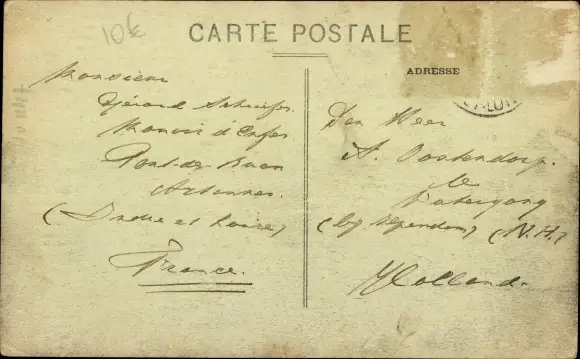 10€
CARTE POSTALE
ADRESSE
Monsieur
Gérard Schiefer
Manoir d'Enfer
Pont-de-Ruan
Artannes.
(Indre et Loire)
France.
Den Heer
A. Oostendorp.
te
Watergang
(bij Ilpendam) (N.H.)
Holland.